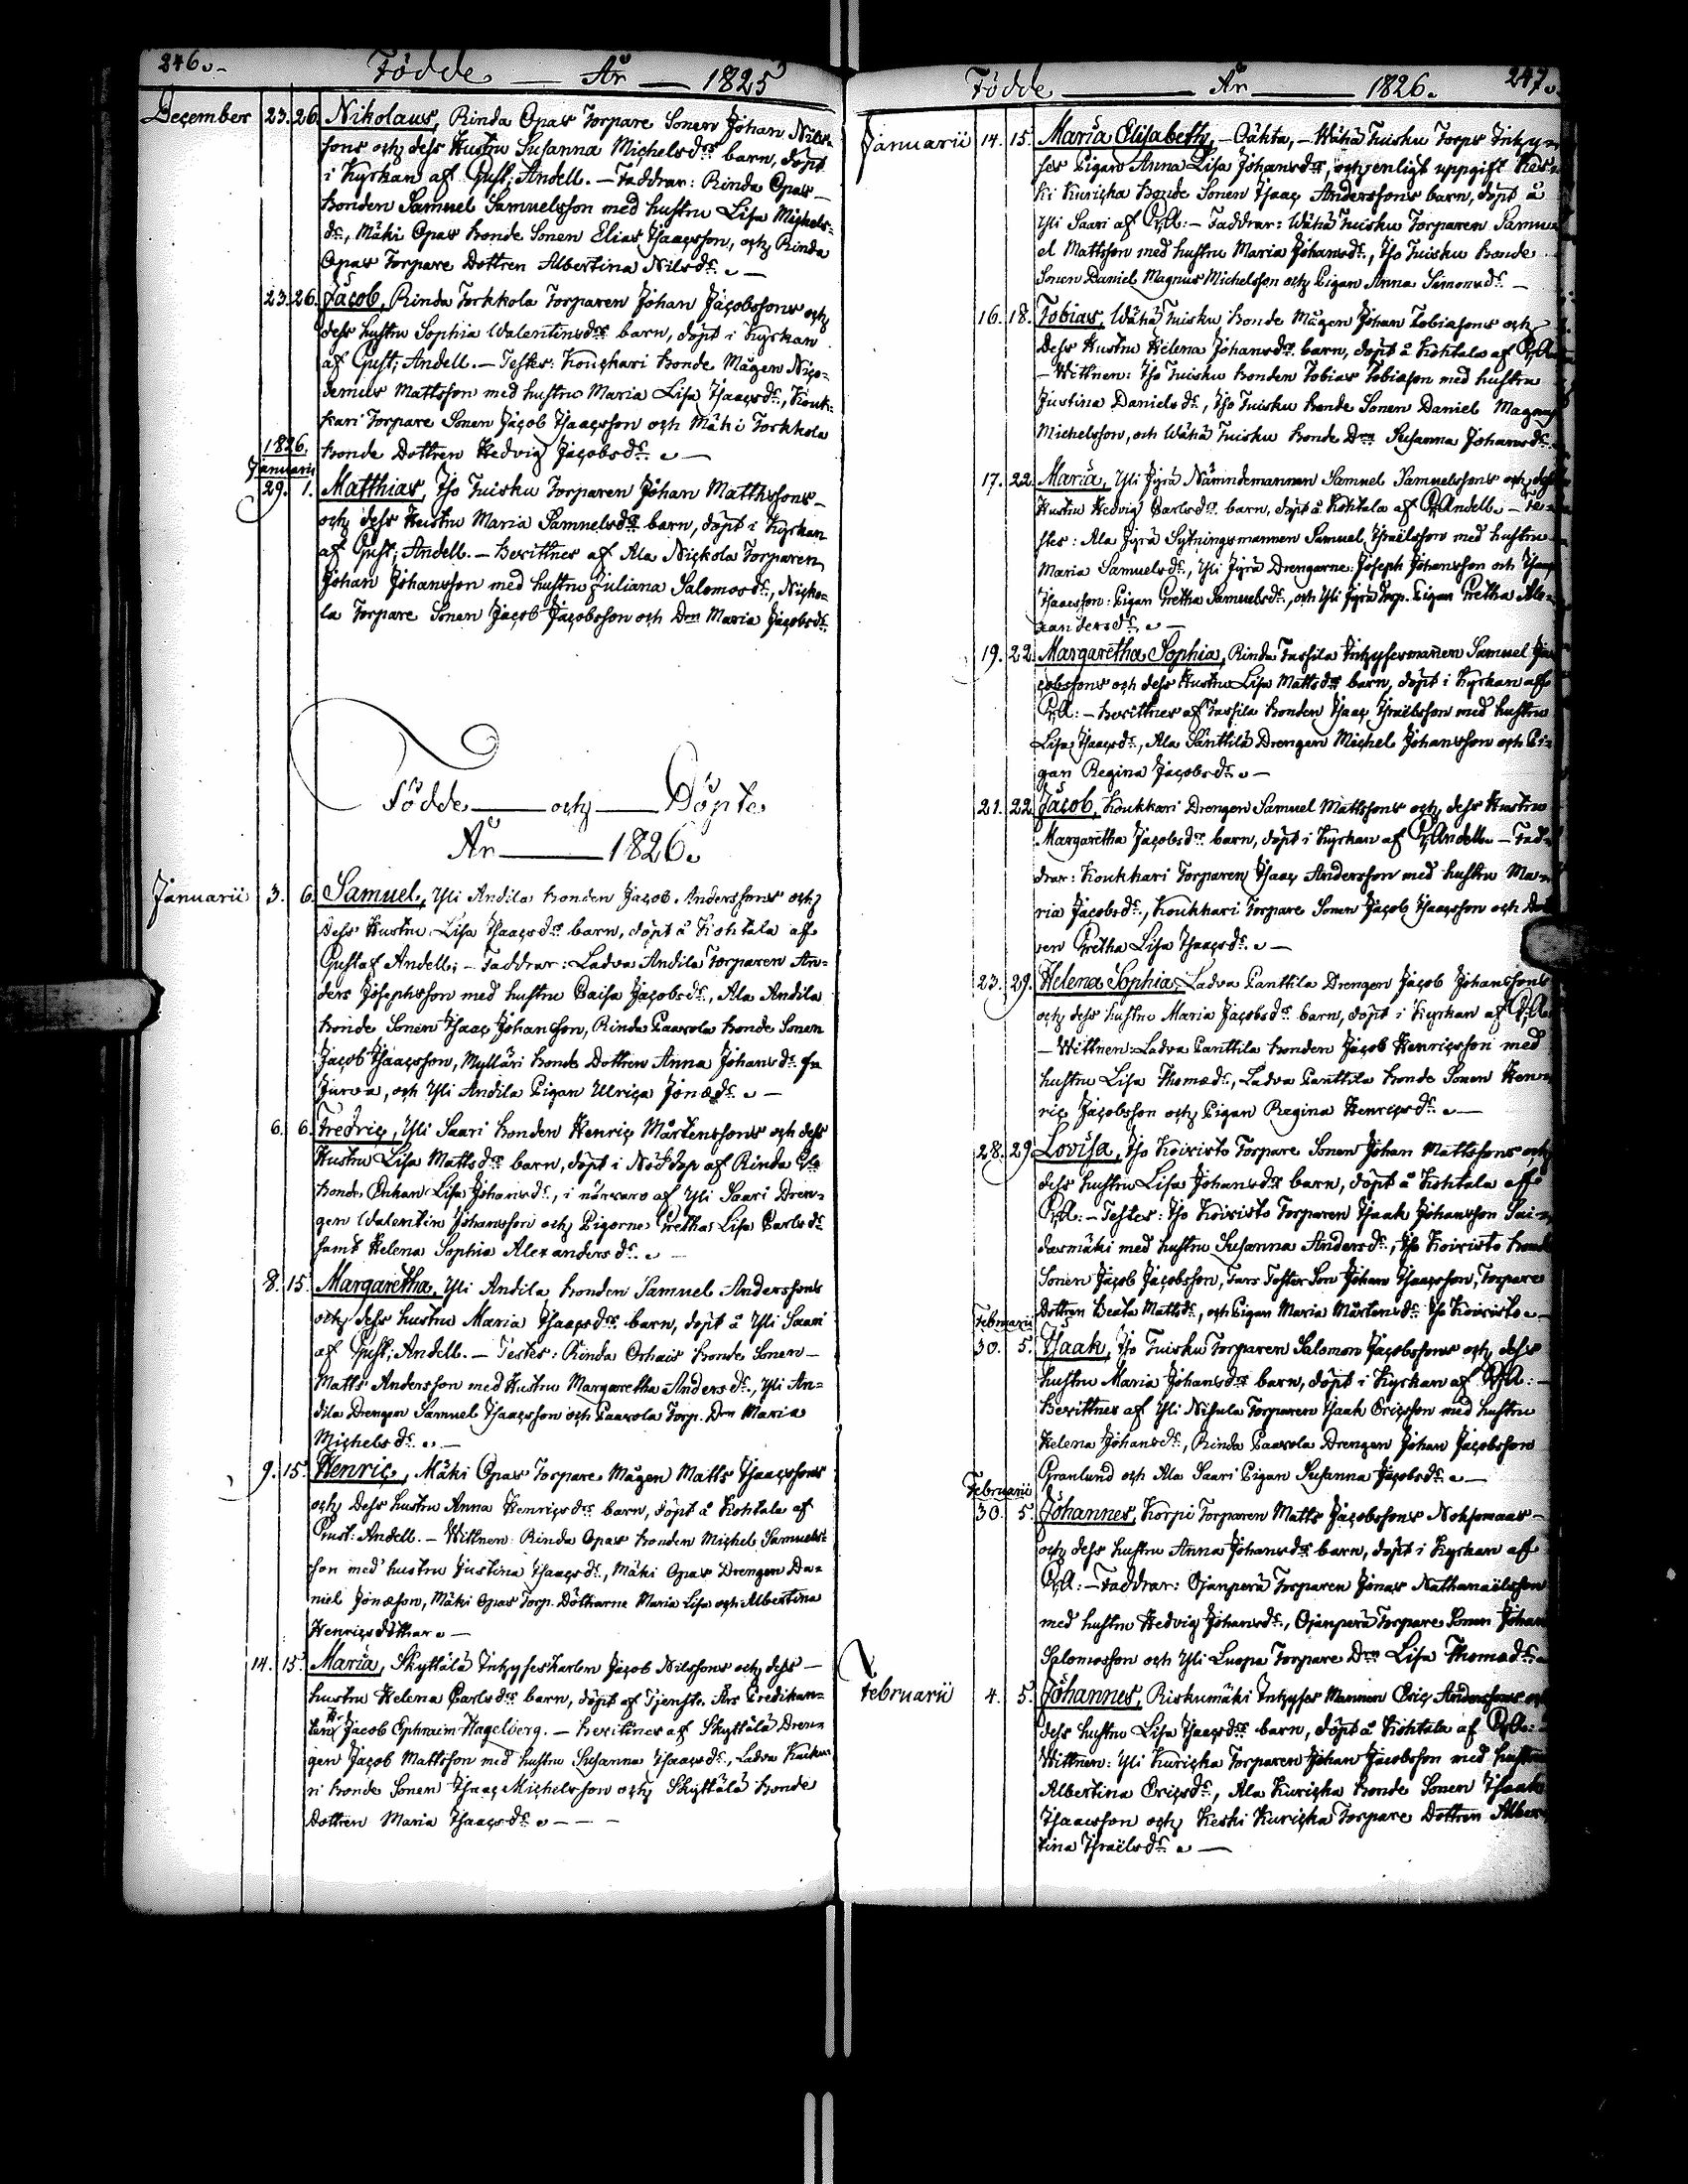 246.
Födde — År — 1825
December 23. 26. Nikolaus, Rinda Opas Torpare Sonen Johan Nils-
sons och dess Hustru Susanna Michelsdrs barn, döpt
i Kyrkan af Gust: Andell. — Faddrar: Rinda Opas
Bonden Samuel Samuelsson med hustru Lisa Michels-
dr, Mäki Opas Bonde Sonen Elias Isaacsson, och Rinda
Opas Torpare Dottren Albertina Nilsdr. —
23. 26. Jacob, Rinda Torkkola Torparen Johan Jacobssons och
dess hustru Sophia Walentinsdrs barn, döpt i Kyrkan
af Gust: Andell. — Testes: Koukkari Bonde Mågen Nico-
demus Mattsson med hustru Maria Lisa Isaacsdr, Kouk-
kari Torpare Sonen Jacob Isaacsson och Mäki Torkkola
Bonde Dottren Hedvig Jacobsdr. —
1826.
Januarii
29. 1. Matthias, Iso Tuisku Torparen Johan Matthssons —
och dess Hustru Maria Samuelsdrs barn, döpt i Kyrkan
af Gust: Andell. — Bevittnes af Ala Nickola Torparen
Johan Johansson med hustru Juliana Salomosdr, Nicko-
la Torpare Sonen Jacob Jacobsson och Drn Maria Jacobsdr.
Födde — och — Döpte
År — 1826.
Januarii 3. 6. Samuel, Yli Andila Bonden Jacob Anderssons och
dess Hustru Lisa Isaacsdrs barn, döpt å Kohtala af
Gustaf Andell; — Faddrar: Ladva Andila Torparen An-
ders Josephsson med hustru Caisa Jacobsdr, Ala Andila
Bonde Sonen Isaac Johansson, Rinda Paavola Bonde Sonen
Jacob Isaacsson, Mylläri Bonde Dottren Anna Johansdr fr
Jurva, och Yli Andila Pigan Ulrica Jonædr. —
6. 6. Fredric, Yli Saari Bonden Henric Mårtenssons och dess
Hustru Lisa Mattsdrs barn, döpt i Nöddop af Rinda
Bonde Enkan Lisa Johansdr, i närvaro af Yli Saari Dren-
gen Walentin Johansson och Pigorne Gretha Lisa Carlsdr
samt Helena Sophia Alexandersdr. —
8. 15. Margaretha, Yli Andila Bonden Samuel Anderssons
och dess hustru Maria Isaacsdrs barn, döpt å Yli Saari
af Gust: Andell. — Testes: Rinda Orhais Bonde Sonen —
Matts Andersson med Hustru Margaretha Andersdr, Yli An-
dila Drengen Samuel Isaacsson och Paavola Torp. Drn Maria
Michelsdr. —
9. 15. Henric, Mäki Opas Torpare Mågen Matts Isaacssons
och dess hustru Anna Henricsdrs barn, döpt å Kohtala af
Gust: Andell. — Wittnen: Rinda Opas Bonden Michel Samuels-
son med hustru Justina Isaacsdr, Mäki Opas Drengen Da-
niel Jonæson, Mäki Opas Torp. Döttrarne Maria Lisa och Albertina
Henricsdöttrar. —
14. 15. Maria, Skyttälä Inhyseskarlen Jacob Nilssons och dess —
hustru Helena Carlsdrs barn, döpt af Tjenste Års Predikan-
ten Hr Jacob Ephraim Hagelberg. — Bevittnes af Skyttälä Dren-
gen Jacob Mattsson med hustru Susanna Isaacsdr, Ladva
ri Bonde Sonen Isaac Michelsson och Skyttälä Bonde
Dottren Maria Isaacsdr. — — —
Födde — År — 1826. 247.
Januarii 14. 15. Maria Elisabeth, — Oäkta, — Wähä Tuisku Torps Inhy-
ses Pigan Anna Lisa Johansdrs, och enligt uppgift Kes-
ki Kuricka Bonde Sonen Isaac Anderssons barn, döpt å
Yli Saari af G;A: — Faddrar: Wähä Tuisku Torparen Samu-
el Mattsson med hustru Maria Johansdr, Iso Tuisku Bonde
Sonen Daniel Magnus Michelsson och Pigan Anna Simonsdr. —
16. 18. Tobias, Wähä Tuisku Bonde Mågen Johan Tobiasons och
dess Hustru Helena Johansdrs barn, döpt å Kohtala af G;A
— Wittnen: Iso Tuisku Bonden Tobias Tobiason med hustru
Justina Danielsdr, Iso Tuisku Bonde Sonen Daniel Magnus
Michelsson, och Wähä Tuisku Bonde Drn Susanna Johansdr.
17. 22. Maria, Yli Jyrä Nämndemannen Samuel Samuelssons och dess
Hustru Hedvig Carlsdrs barn, döpt å Kohtala af G;Andell. — Te-
stes: Ala Jyrä Sytningsmannen Samuel Israëlsson med hustru
Maria Samuelsdr, Yli Jyrä Drengarne: Joseph Johansson och Isaac
Isaacsson: Pigan Gretha Samuelsdr, och Yli Jyrä Torp. Pigan Gretha Ale-
xandersdr. —
19. 22. Margaretha Sophia, Rinda Tassila Inhysesmannen Samuel Ja-
cobssons och dess Hustru Lisa Mattsdrs barn, döpt i Kyrkan af
G;A: — Bevittnes af Tassila Bonden Isaac Israëlsson med hustru
Lisa Isaacsdr, Ala Santtila Drengen Michel Johansson och Pi-
gan Regina Jacobsdr. —
21. 22. Jacob, Koukkari Drengen Samuel Mattssons och dess Hustru
Margaretha Jacobsdrs barn, döpt i Kyrkan af G;Andell. — Fad-
drar: Koukkari Torparen Isaac Andersson med hustru Ma-
ria Jacobsdr, Koukkari Torpare Sonen Jacob Isaacsson och Dott
ren Gretha Lisa Isaacsdr. —
23. 29. Helena Sophia, Ladva Panttila Drengen Jacob Johanssons
och dess hustru Maria Jacobsdrs barn, döpt i Kyrkan af G;A.
— Wittnen: Ladva Panttila Bonden Jacob Henricsson med
hustru Lisa Thomædr, Ladva Panttila Bonde Sonen Hen-
ric Jacobsson och Pigan Regina Henricsdr. —
28. 29. Lovisa, Iso Koivisto Torpare Sonen Johan Mattssons och
dess hustru Lisa Johansdrs barn, döpt å Kohtala af
G;A: — Testes: Iso Koivisto Torparen Isaak Johansson
med hustru Susanna Andersdr, Iso Koivisto Bonde
Sonen Jacob Jacobsson, Fars Foster Son Johan Isaacsson, Torpare
Dottren Beata Mattsdr, och Pigan Maria Mårtensdr Iso Koivisto. —
Februarii
30. 5. Isaak, Iso Tuisku Torparen Salomon Jacobssons och dess
hustru Maria Johansdrs barn, döpt i Kyrkan af G;A: —
Bevittnes af Yli Nisula Torparen Isaak Ericsson med hustru
Helena Johansdr, Rinda Paavola Drengen Johan Jacobsson
Granlund och Ala Saari Pigan Susanna Jacobsdr. —
Februarii
30. 5. Johannes, Korpi Torparen Matts Jacobssons —
och dess hustru Anna Johansdrs barn, döpt i Kyrkan af
G;A: — Faddrar: Ojanperä Torparen Jonas Nathanaëlsson
med hustru Hedvig Johansdr, Ojanperä Torpare Sonen Johan
Salomosson och Yli Luopa Torpare Drn Lisa Thomædr.
Februarii 4. 5. Johannes, Riskumäki Inhyses Mannen Eric Anderssons och
dess hustru Lisa Isaacsdrs barn, döpt å Kohtala af G;A: —
Wittnen: Yli Kuricka Torparen Johan Jacobsson med hustru
Albertina Ericsdr, Ala Kuricka Bonde Sonen Isaak
Isaacsson och Keski Kuricka Torpare Dottren Alber-
tina Israëlsdr. —